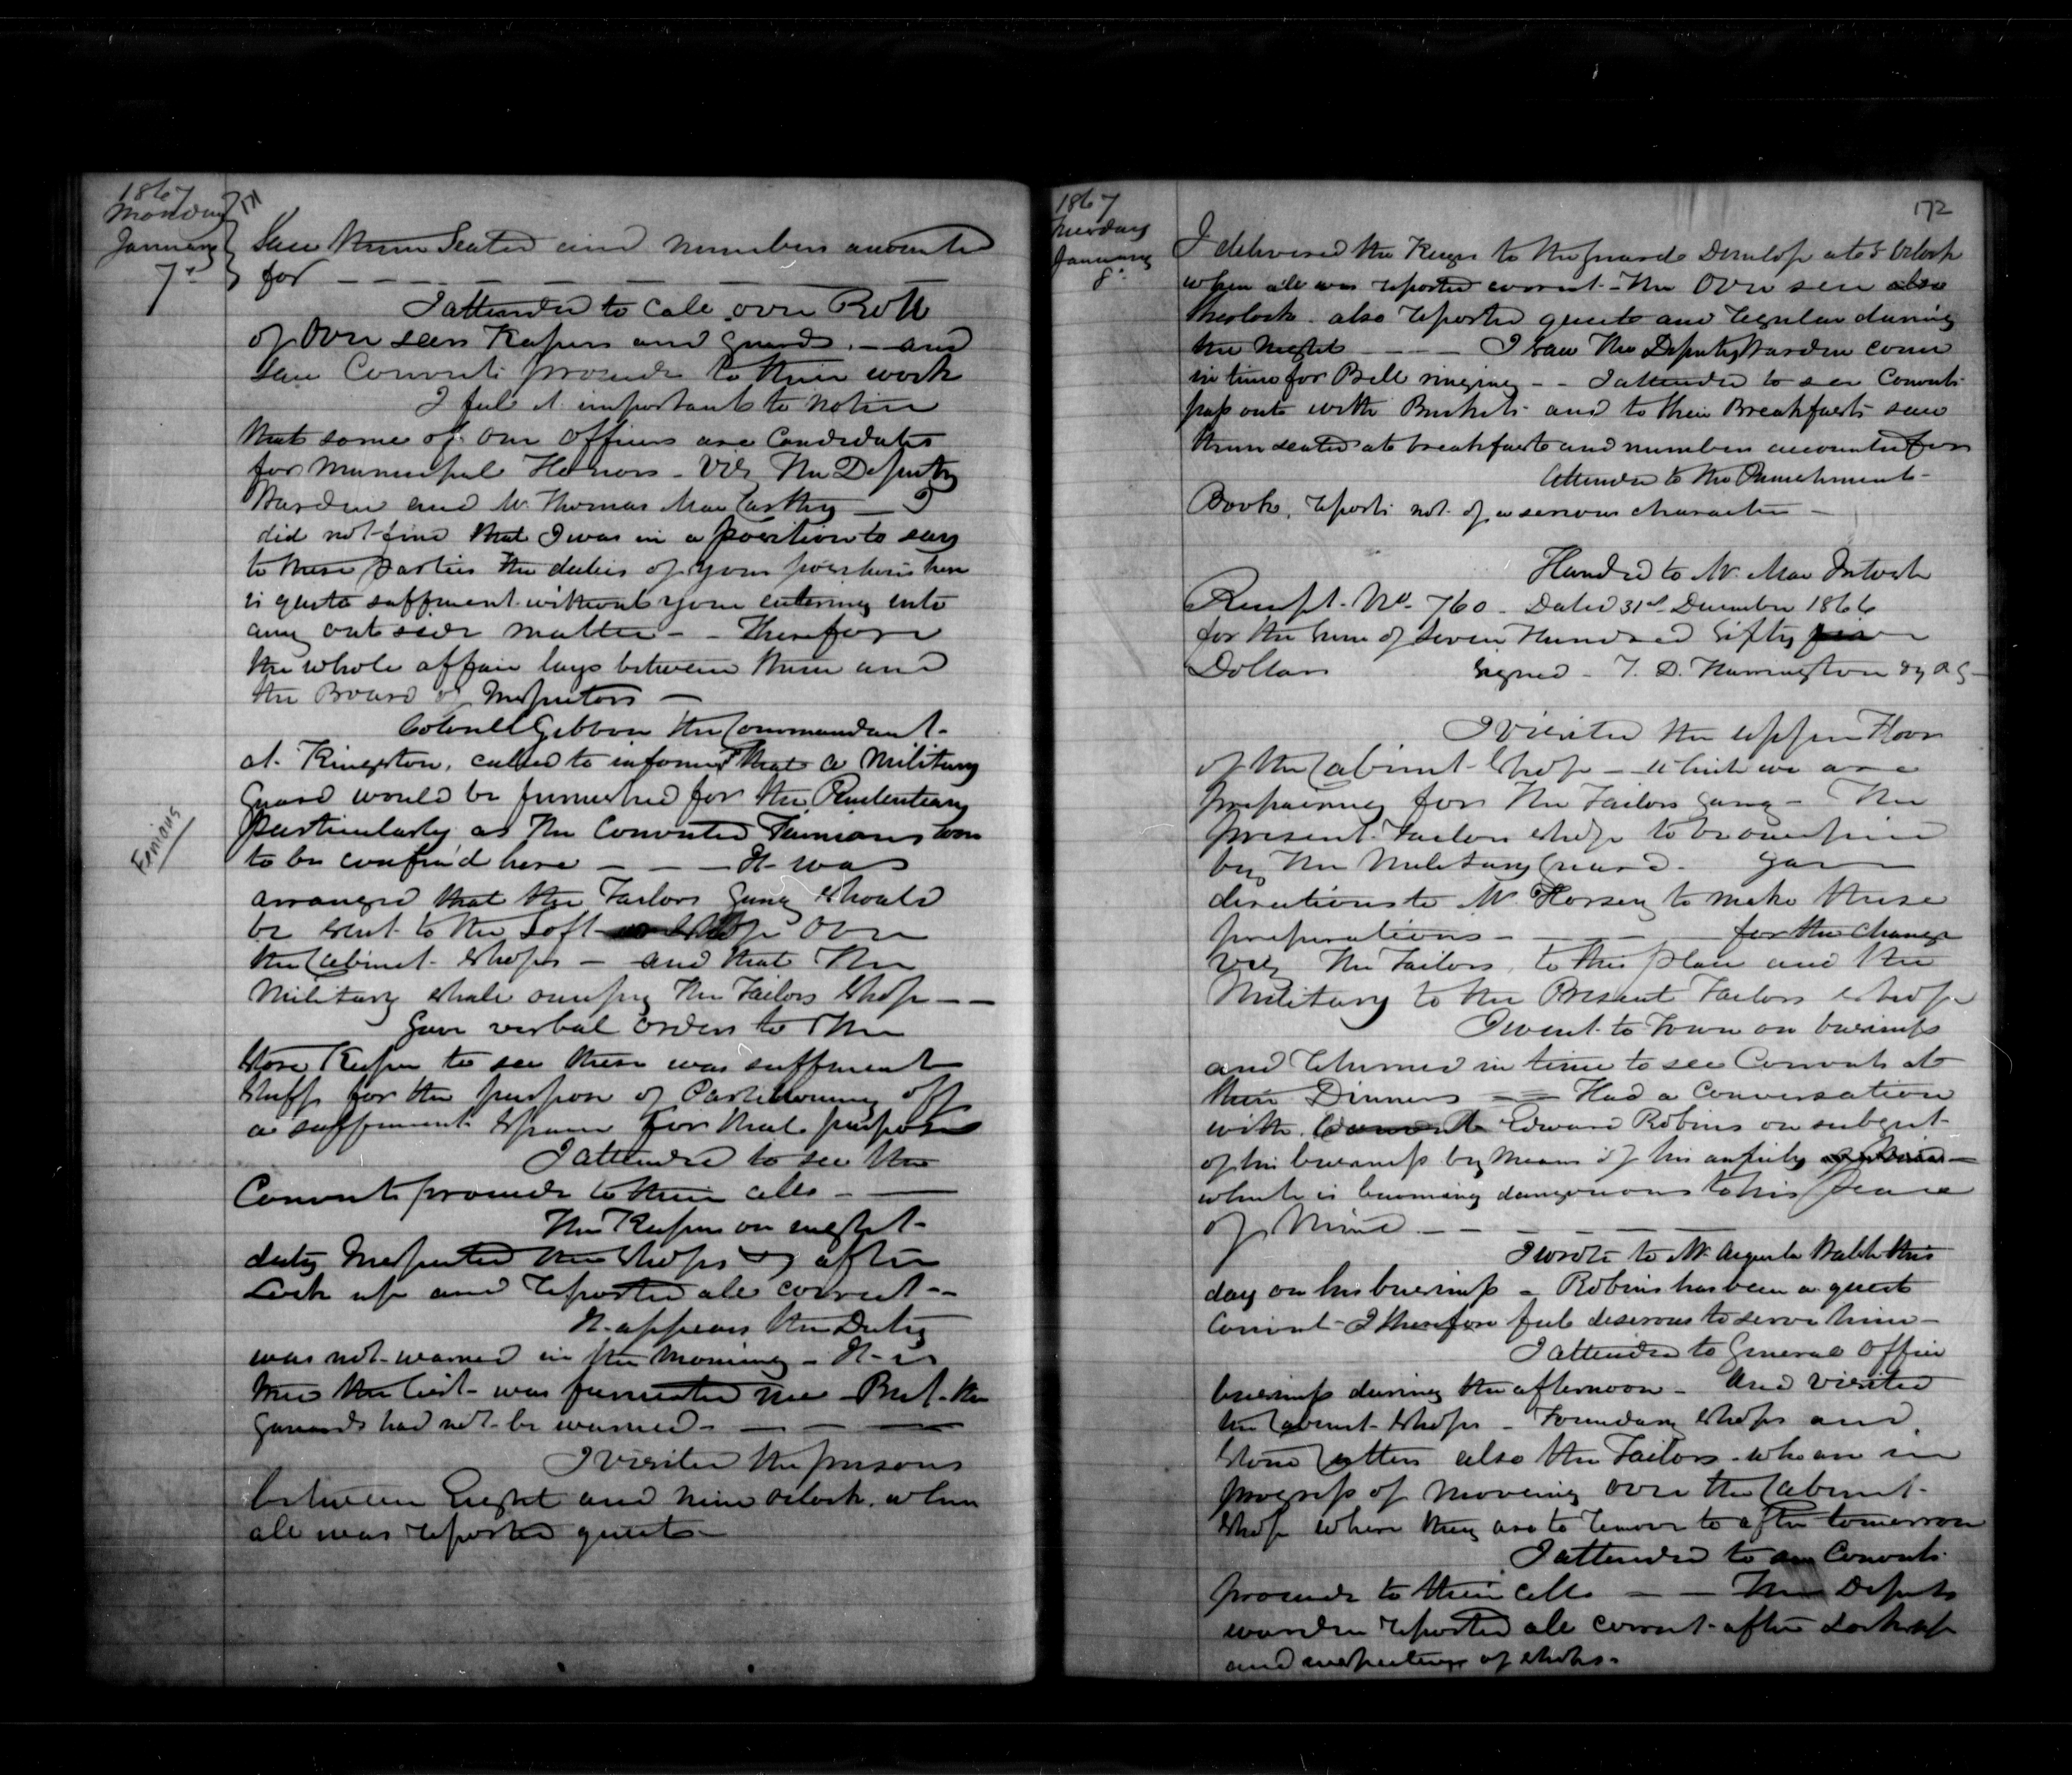 1867
Monday
January
7th
Saw them Seated and numbers accounted
for
I attended to Call over Roll
of Over seers Keepers and Guards. - and
Saw Convicts proceed to their work
I feel it important to notice
that some of our Officers are Candidates
for Municipal Honors - Viz The Deputy
Warden and Mr. Thomas MacCarthy - I
did not find that I was in a position to say
to these parties the duties of your positions here
is quite sufficient without your entering into
any out side matter - - Therefore
the whole affair lays between them and
the Board of Inspectors -
Colonell Gibbon the Commandant
at Kingston, called to inform that a Military
Guard would be furnished for the Penitentiary
particularly as the Convicted Feinians were
to be confin'd here - - - It was
arranged that the Tailors Gang should
be sent to the Loft over
the Cabinet Shops - and that the
Military shall occupy the Tailors Shop - -
Gave verbal orders to the
Store Keeper to see there was sufficient
Stuff for the purpose of Partitioning off
a sufficient Space for that purpose
I attended to see the
Convicts proceed to their cells -
The Keeper on night
duty Inspected the Shops after
Lock up and reported all correct -
It appears the Duty
was not warned in the Morning - It is
true the list was furnished me - But the
Guards had not be warned -
I visited the prisons
between Eight and nine oclock. when
all was reported quiet -
Fenians
172
1867
Tuesday
January
8th
I delivered the Keys to the guard Dunlop at 5 Oclock
when all was reported correct - The Over seer also
Sherlock. also reported quiet and regular during
the Night - - - I saw the Deputy Warden come
in time for Bell ringing - - I attended to see Convicts
pass out with Buckets and to their Breakfasts saw
them seated at breakfast and numbers accounted for
Attended to the Punishment
Book, reports not of a serious character -
Handed to Mr. Mac Intosh
Receipt No. 760 - Dated 31st December 1866
for the Sum of Seven Hundred Fifty five
Dollars Signed - T. D. Harrington Dy R G -
I visited the upper Floor
of the Cabinet Shop - which we are
preparing for the Tailors Gang - The
present Tailors Shop to be occupied
by the Military Guard. Gave
directions to Mr. Horsey to make these
preparations - - - for the change
Viz The Tailors, to this place and the
Military to the Present Tailors Shop
I went to Town on business
and returned in time to see Convicts at
their Dinners - - Had a Conversation
with Convict Edward Robins on subject
of his business by means of his
which is becoming dangerous to his peace
of Mind - - - -
I wrote to Mr. Walsh this
day on his business - Robins has been a quiet
Convict - I therefore feel desirous to serve him -
I attended to General Office
business during the afternoon - And visited
the Cabinet Shops - Foundary Shops and
Stone Cutters also the Tailors - who are in
progress of moving over the Cabinet
Shop where they are to remove to after tomorrow
I attended to see Convicts
proceed to their cells - - The Deputy
warden reported all correct after Lock up
and inspecting of shops -